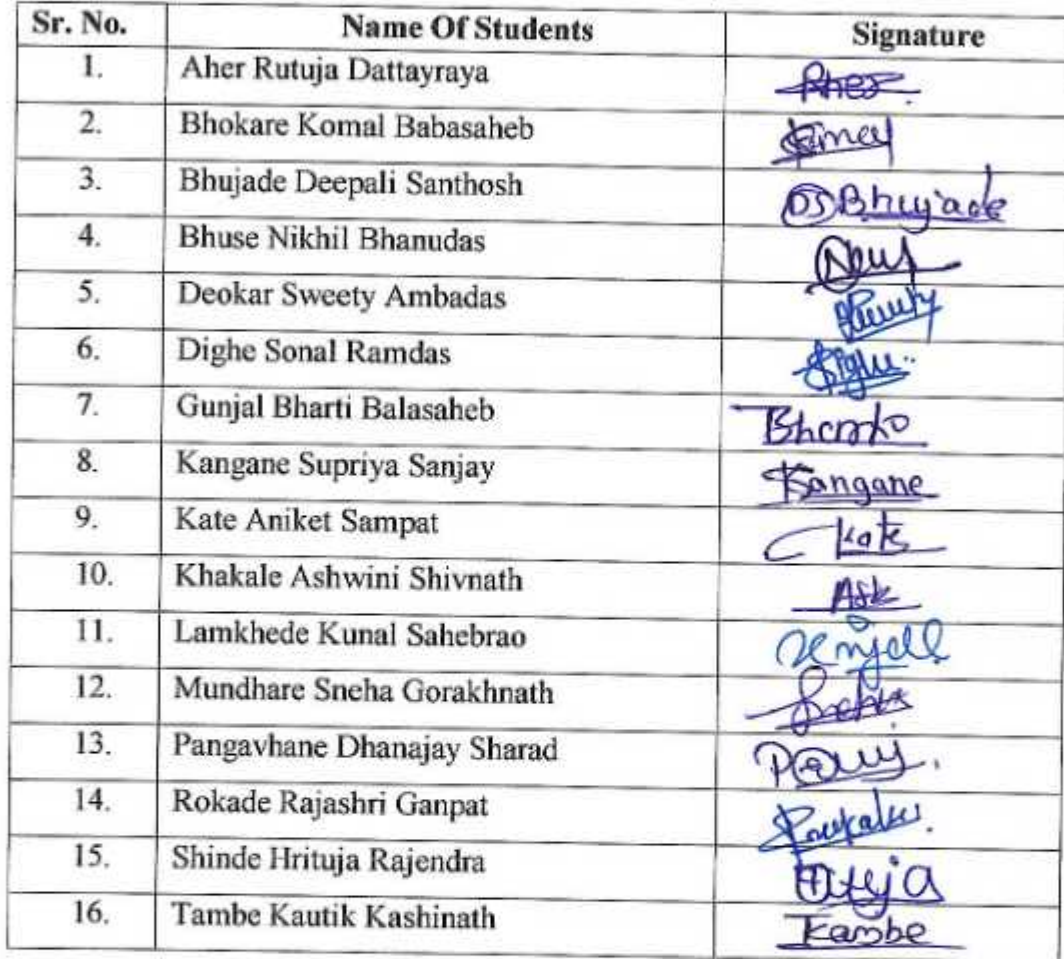 Sr. No. Name Of Students Signature
1. Aher Rutuja Dattayraya Aher
2. Bhokare Komal Babasaheb
3. Bhujade Deepali Santhosh DSBhujade
4. Bhuse Nikhil Bhanudas
5. Deokar Sweety Ambadas
6. Dighe Sonal Ramdas
7. Gunjal Bharti Balasaheb
8. Kangane Supriya Sanjay Kangane
9. Kate Aniket Sampat Kate
10. Khakale Ashwini Shivnath Ask
11. Lamkhede Kunal Sahebrao
12. Mundhare Sneha Gorakhnath Sneha
13. Pangavhane Dhanajay Sharad
14. Rokade Rajashri Ganpat
15. Shinde Hrituja Rajendra
16. Tambe Kautik Kashinath